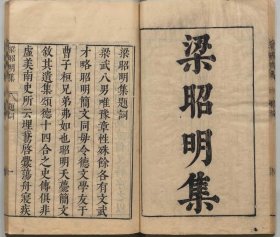 梁昭明集
梁昭明集題詞
梁武八男唯豫章性殊餘各有文武
才略昭明簡文同母令德文學友于
曹子桓兄弟弗如也昭明夭薨簡文
其遺集頌德十四合之史傳俱非
虛美南史所云埋鵝啓釁蕩舟寢疾
梁昭明集
題詞
一